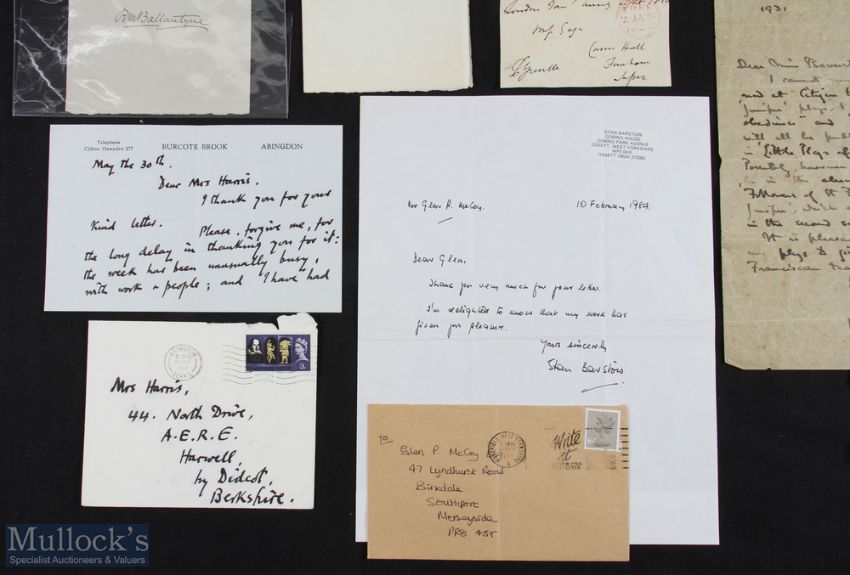 R M Ballantyne
Mrs Gage
Farnham
1931
Dear Miss
I cannot
"Little Plays of
in the second
It is please
my plays & gi
Franciscan
Telephone
Clifton Hampden 277
BURCOTE BROOK
ABINGDON
May the 30th.
Dear Mrs Harris.
I thank you for your
kind letter. Please, forgive me, for
the long delay in thanking you for it:
the week has been unusually busy,
with work & people; and I have had
STAN BARSTOW
GORING HOUSE
GORING PARK AVENUE
OSSETT, WEST YORKSHIRE
WF5 0HX
Mr Glen P. McCoy.
10 February 1984
Dear Glen,
Thank you very much for your letter.
I'm delighted to know that my work has
given you pleasure.
Yours sincerely
Stan Barstow
3D
Mrs Harris,
44. North Drive,
A.E.R.E.
Harwell,
by Didcot,
Berkshire.
To
Glen P. McCoy
47 Lyndhurst Road
Birkdale
Southport
Merseyside
PR8 4JT
Write
it
Mullock's
Specialist Auctioneers & Valuers